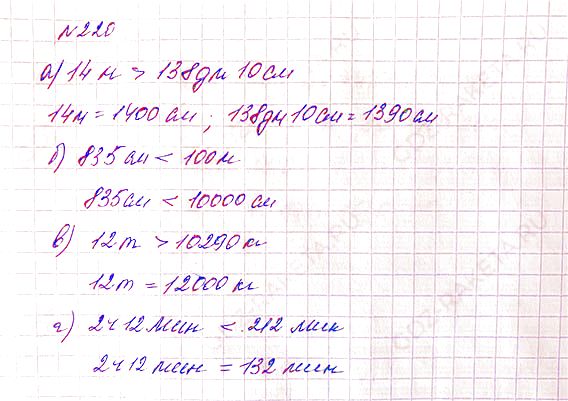 №220
а) 14 м > 138дм 10см
14м = 1400 см ; 138дм 10см = 1390 см
б) 835 см < 100м
835см < 10000 см
в) 12т > 10290кг
12т = 12000 кг
г) 2ч 12 мин < 212 мин
2ч 12 мин = 132 мин
GDZ-RAKETA.RU